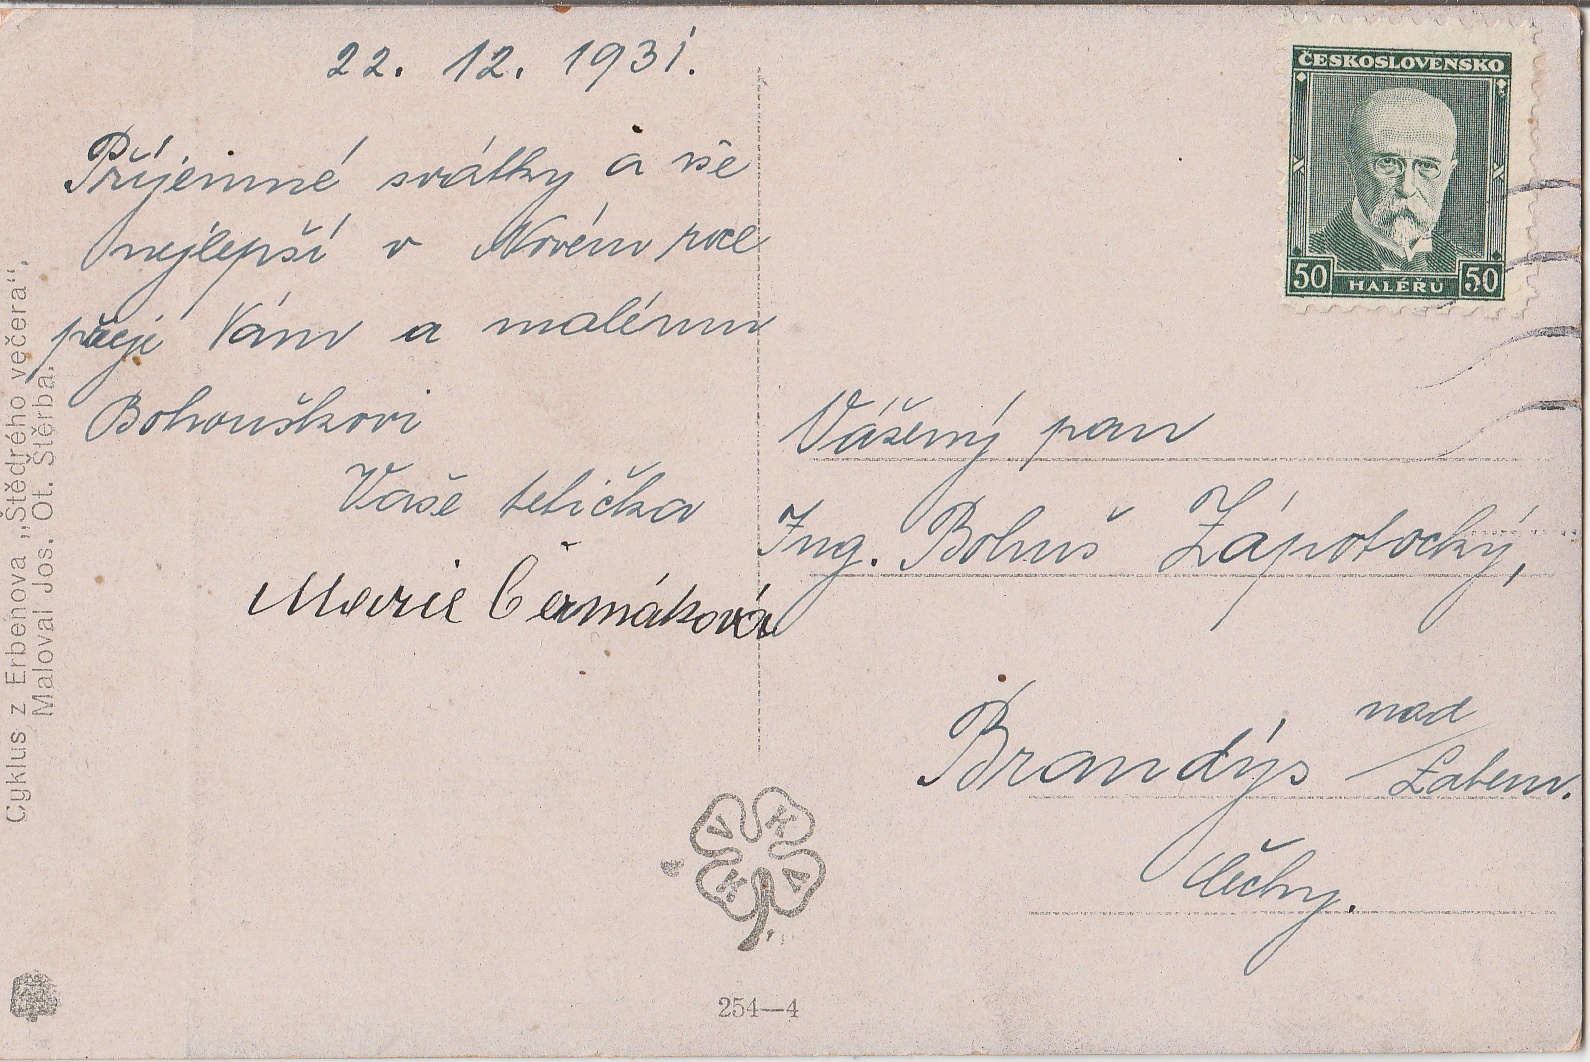 22. 12. 1931.
Příjemné svátky a vše
nejlepší v Novém roce
přeje Vám a malému
Bohouškovi
Vaše tetička
Marie Čermáková
ČESKOSLOVENSKO
50 HALÉŘŮ 50
Vážený pan
Ing. Bohuš Zápotocký,
Brandýs nad
Labem.
Čechy.
Cyklus z Erbenova „Štědrého večera“.
Maloval Jos. Ot. Štěrba.
V K
K A
254—4